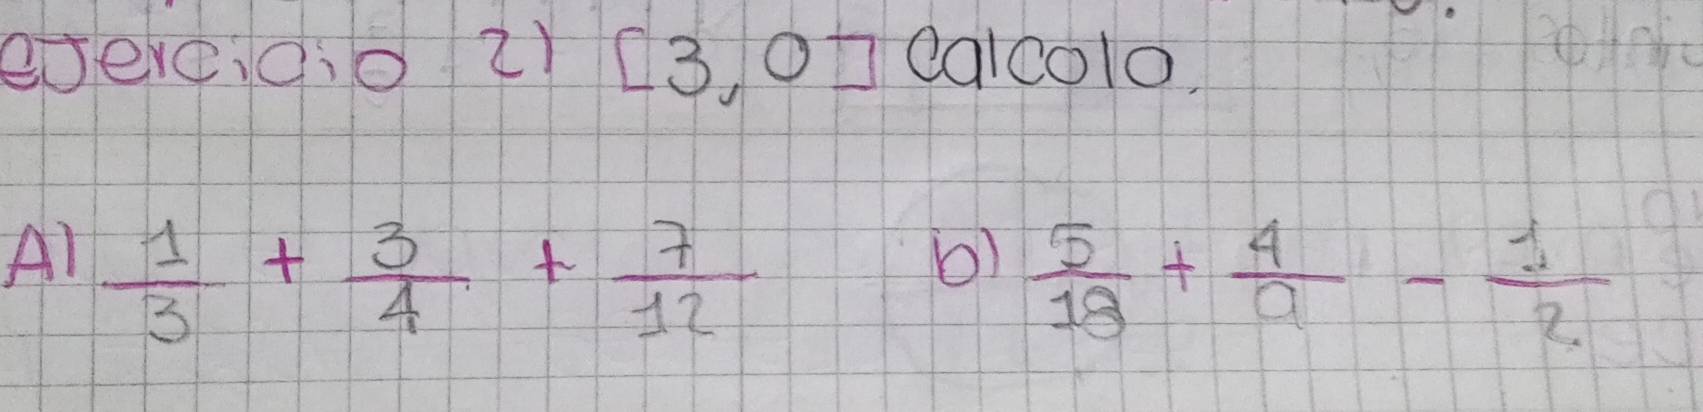 ejercicio 2) [3,0] calcolo.
A) 1/3 + 3/4 + 7/12 b) 5/18 + 4/9 - 1/2